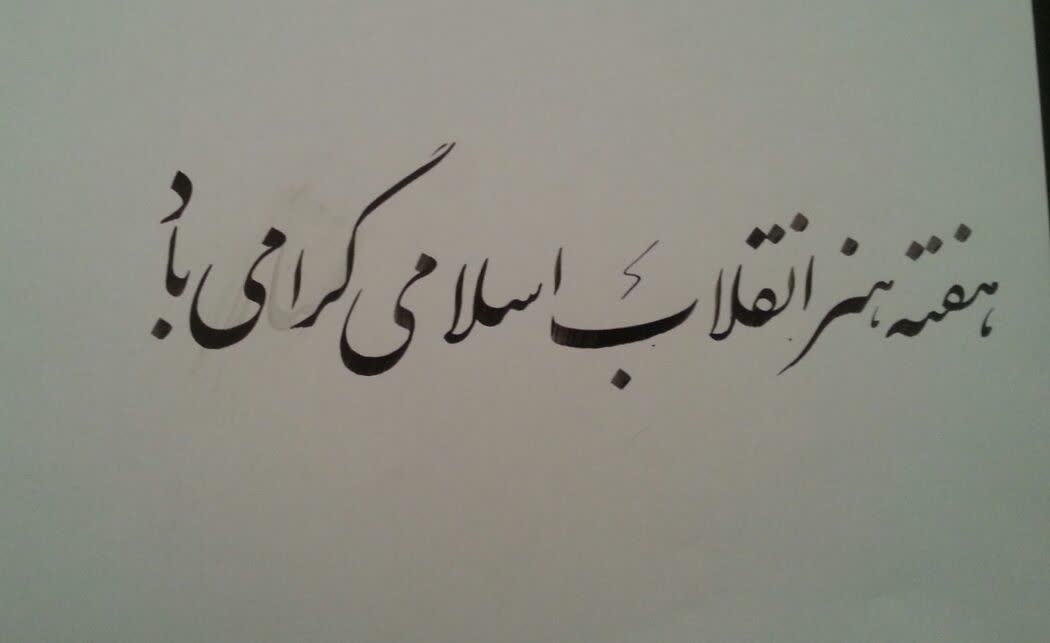 هفته هنر انقلاب اسلامی گرامی باد